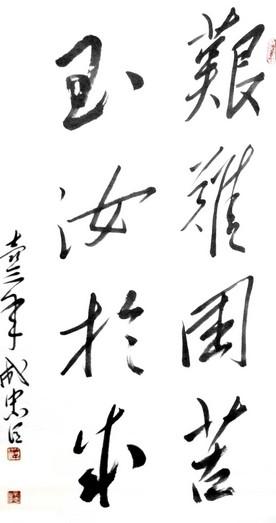 艱難困苦
玉汝於成
壹三年成忠臣